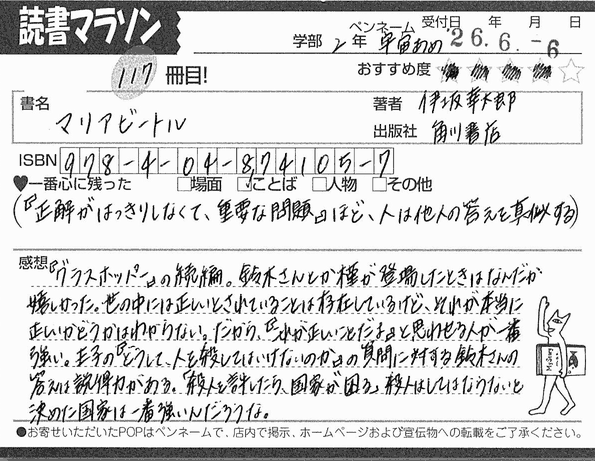 読書マラソン
学部 2年 ペンネーム 宇宙あめ 受付日 年 月 日
26.6.-6
117 冊目!
おすすめ度 ★★★★☆
書名 マリアビートル
著者 伊坂幸太郎
出版社 角川書店
ISBN 978-4-04-874105-7
♥一番心に残った □場面 ☑ことば □人物 □その他
(『正解がはっきりしなくて、重要な問題』ほど、人は他人の答えを真似する)
感想 『グラスホッパー』の続編。鈴木さんとか槿が登場したときはなんだか
嬉しかった。世の中には正しいとされていることは存在しているけど、それが本当に
正しいかどうかはわからない。だから、『これが正しいことだよ』と思わせる人が一番
強い。王子の『どうして、人を殺してはいけないのか』の質問に対する鈴木さんの
答えは説得力がある。『殺人を許したら、国家が困る』殺人はしてはならないと
決めた国家は一番強いんだろうな。
●お寄せいただいたPOPはペンネームで、店内で掲示、ホームページおよび宣伝物への転載をご了承ください。